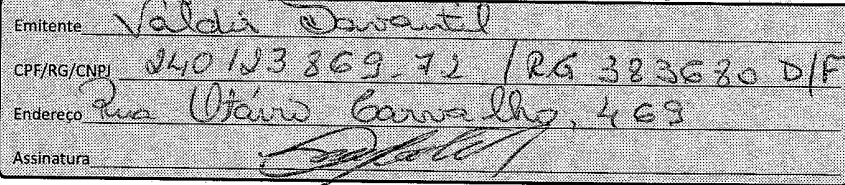 Emitente Valdir Davantel
CPF/RG/CNPJ 240123869-72 / RG 383680 D/F
Endereço Rua Otávio Carvalho, 469
Assinatura